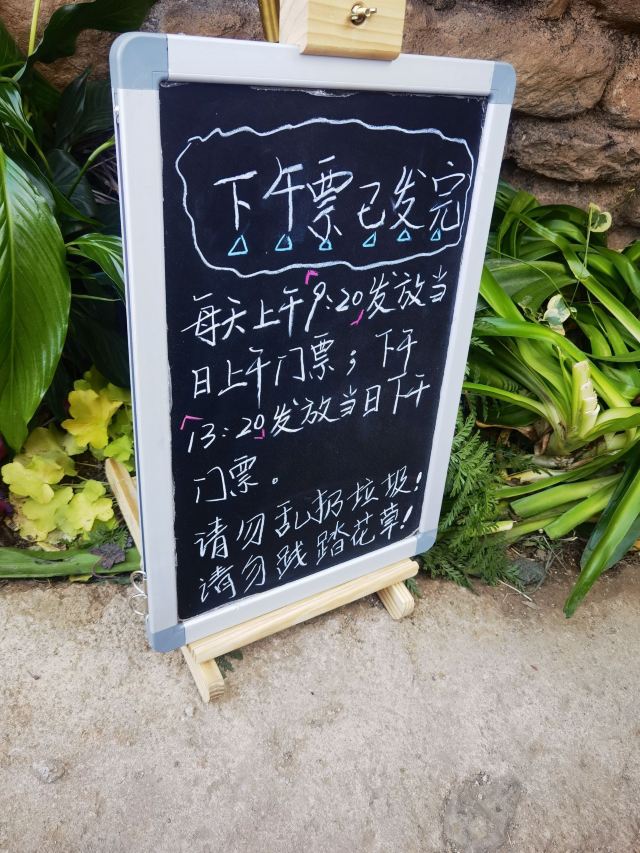 下午票已发完
每天上午9:20发放当
日上午门票；下午
13:20发放当日下午
门票。
请勿乱扔垃圾！
请勿践踏花草！